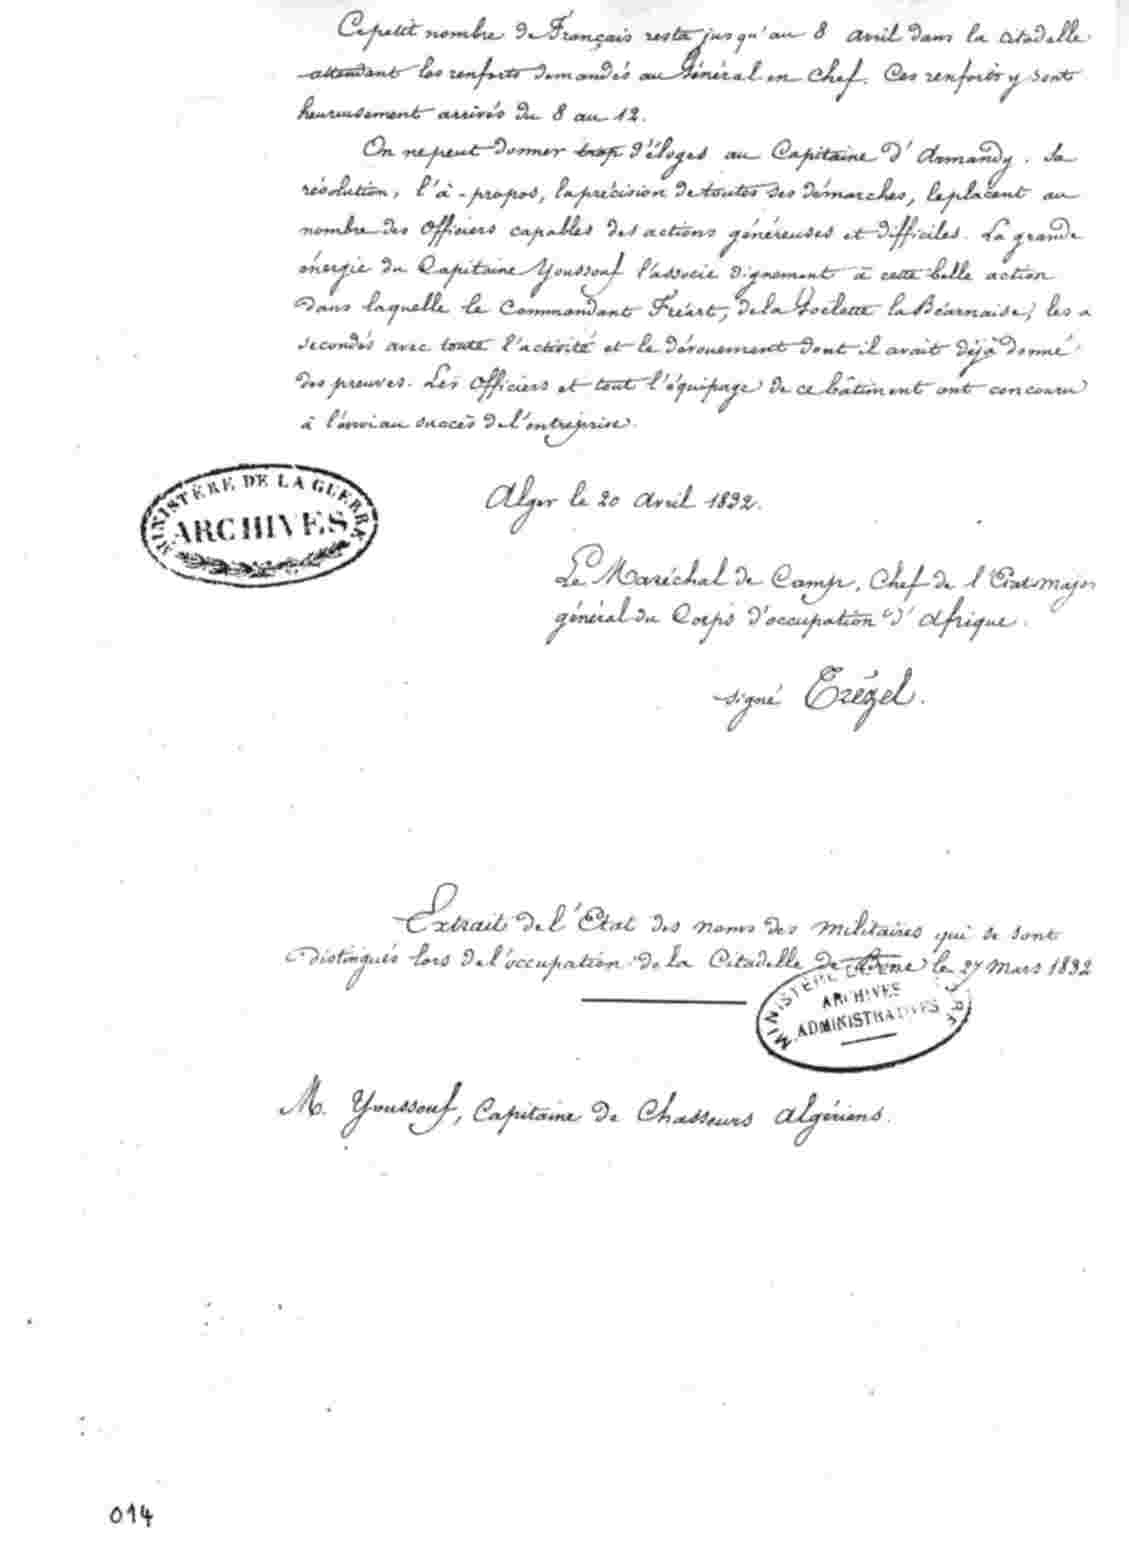 Ce petit nombre de Français resta jusqu'au 8 avril dans la citadelle
attendant les renforts demandés au Général en Chef. Ces renforts y sont
heureusement arrivés du 8 au 12.
On ne peut donner trop d'éloges au Capitaine d'Armandy. Sa
résolution, l'à-propos, la précision de toutes ses démarches, le placent au
nombre des Officiers capables des actions généreuses et difficiles. La grande
énergie du Capitaine Youssouf l'associe dignement à cette belle action
dans laquelle le Commandant Fréart, de la Goëlette la Béarnaise, les a
secondés avec toute l'activité et le dévouement dont il avait déjà donné
des preuves. Les Officiers et tout l'équipage de ce bâtiment ont concouru
à l'envi au succès de l'entreprise.
MINISTÈRE DE LA GUERRE
ARCHIVES
Alger le 20 avril 1832.
Le Maréchal de Camp, Chef de l'Etat major
général du Corps d'occupation d'Afrique.
signé Trézel.
Extrait de l'Etat des noms des militaires qui se sont
distingués lors de l'occupation de la Citadelle de Bône le 27 Mars 1832
MINISTÈRE DE LA GUERRE
ARCHIVES
ADMINISTRATIVES
M. Youssouf, Capitaine de Chasseurs algériens.
014